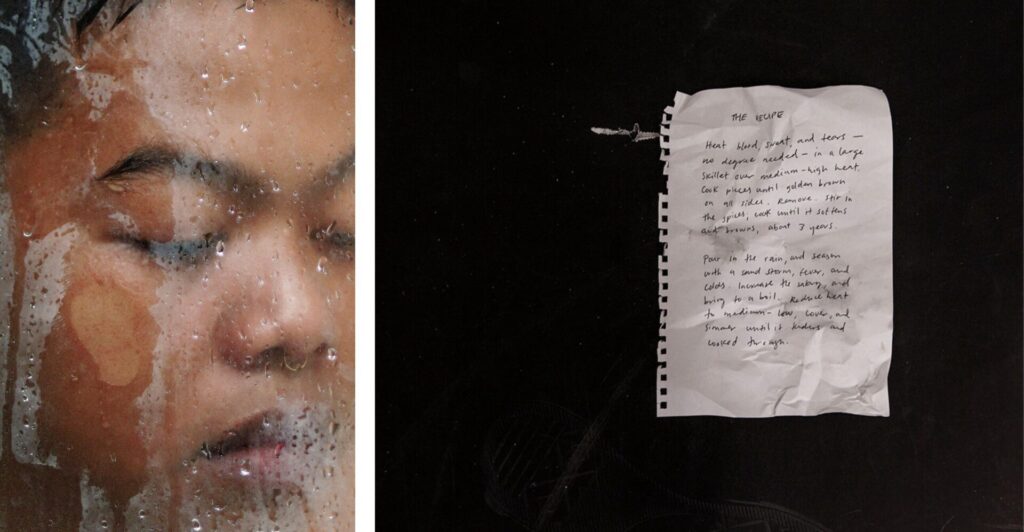 THE RECIPE
Heat blood, sweat, and tears —
no degree needed — in a large
skillet over medium-high heat.
Cook pieces until golden brown
on all sides. Remove. Stir in
the spices, cook until it softens
and browns, about 7 years.
Pour in the rain, and season
with a sand storm, fever, and
colds. Increase the and
bring to a boil. Reduce heat
to medium-low, cover, and
simmer until it tenders and
cooked through.